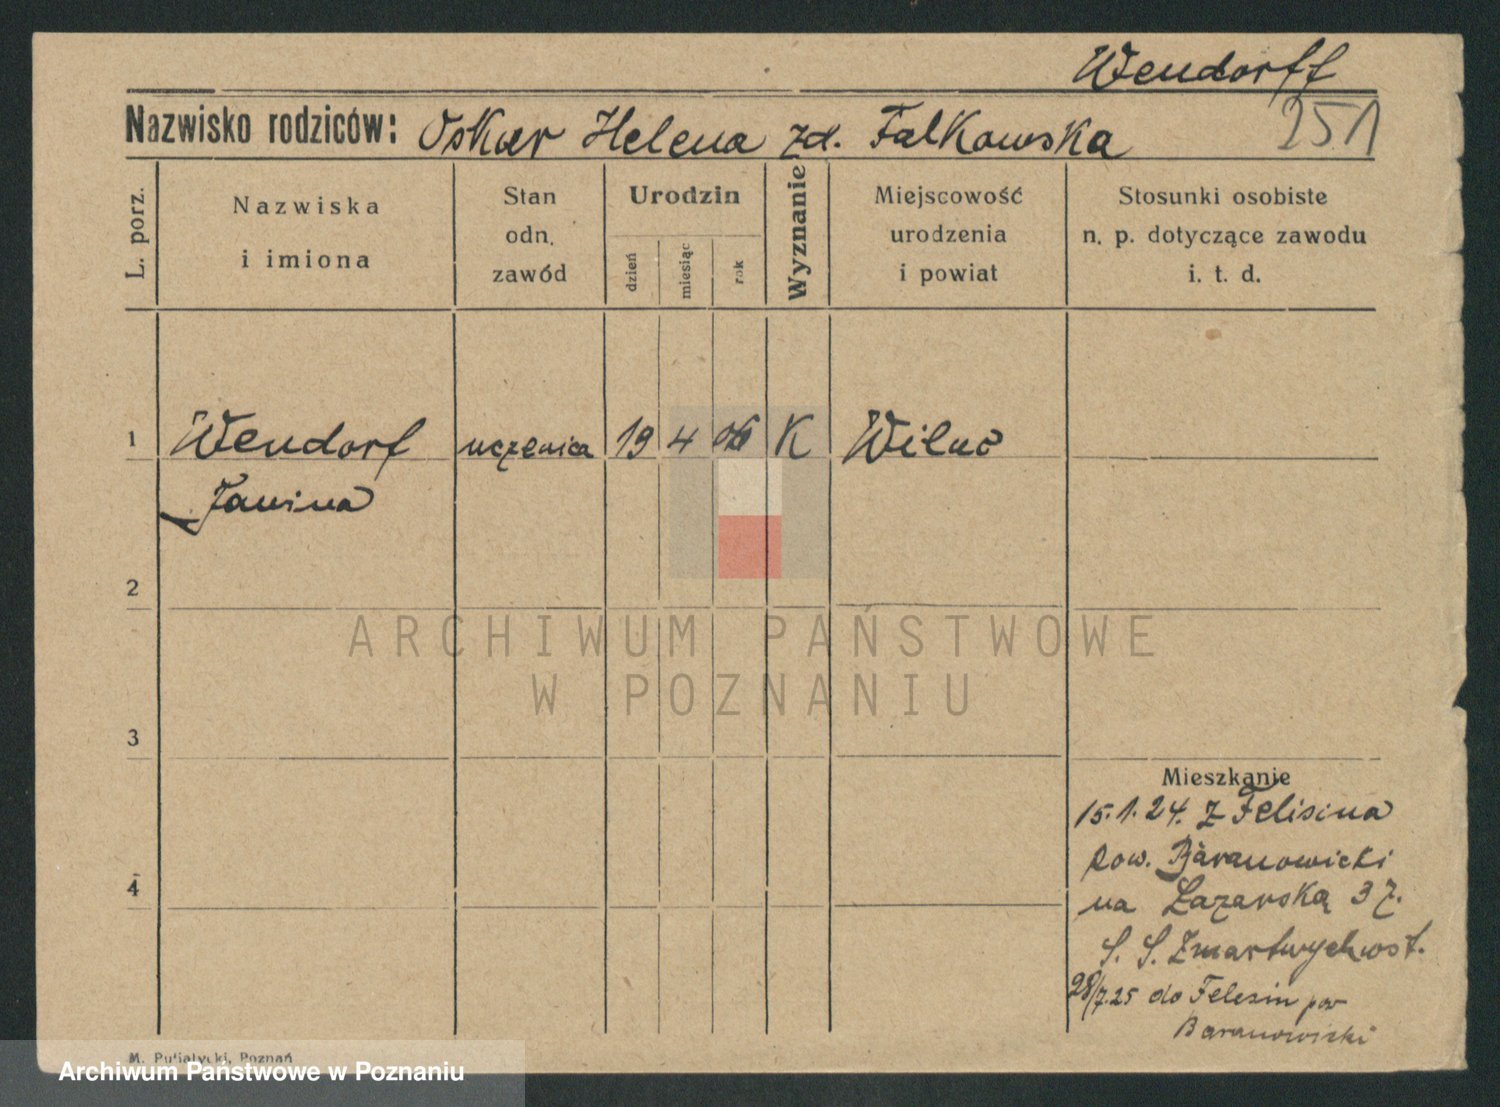 Wendorff
Nazwisko rodziców: Oskar Helena zd. Falkowska 251
L. porz.
Nazwiska
i imiona
Stan
odn.
zawód
Urodzin
dzień
miesiąc
rok
Wyznanie
Miejscowość
urodzenia
i powiat
Stosunki osobiste
n. p. dotyczące zawodu
i. t. d.
1 Wendorf uczenica 19 4 06 K Wilno
Janina
2
ARCHIWUM PAŃSTWOWE
W POZNANIU
3
Mieszkanie
15.1.24. z Felisina
pow. Baranowicki
4
na Łazarską 3 z.
S. S. Zmartwychwst.
28/7.25 do Felezin pow
Baranowicki
M. Putiatycki, Poznań
Archiwum Państwowe w Poznaniu